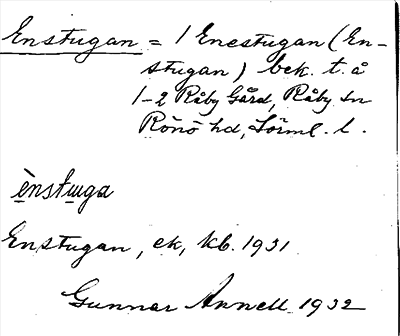 Enstugan = 1 Enestugan (En-
stugan) bek. t. å
1-2 Råby Gård, Råby sn
Rönö hd, Sörml. l.
ènstuga
Enstugan, ek, kb. 1931
Gunnar Annell 1932